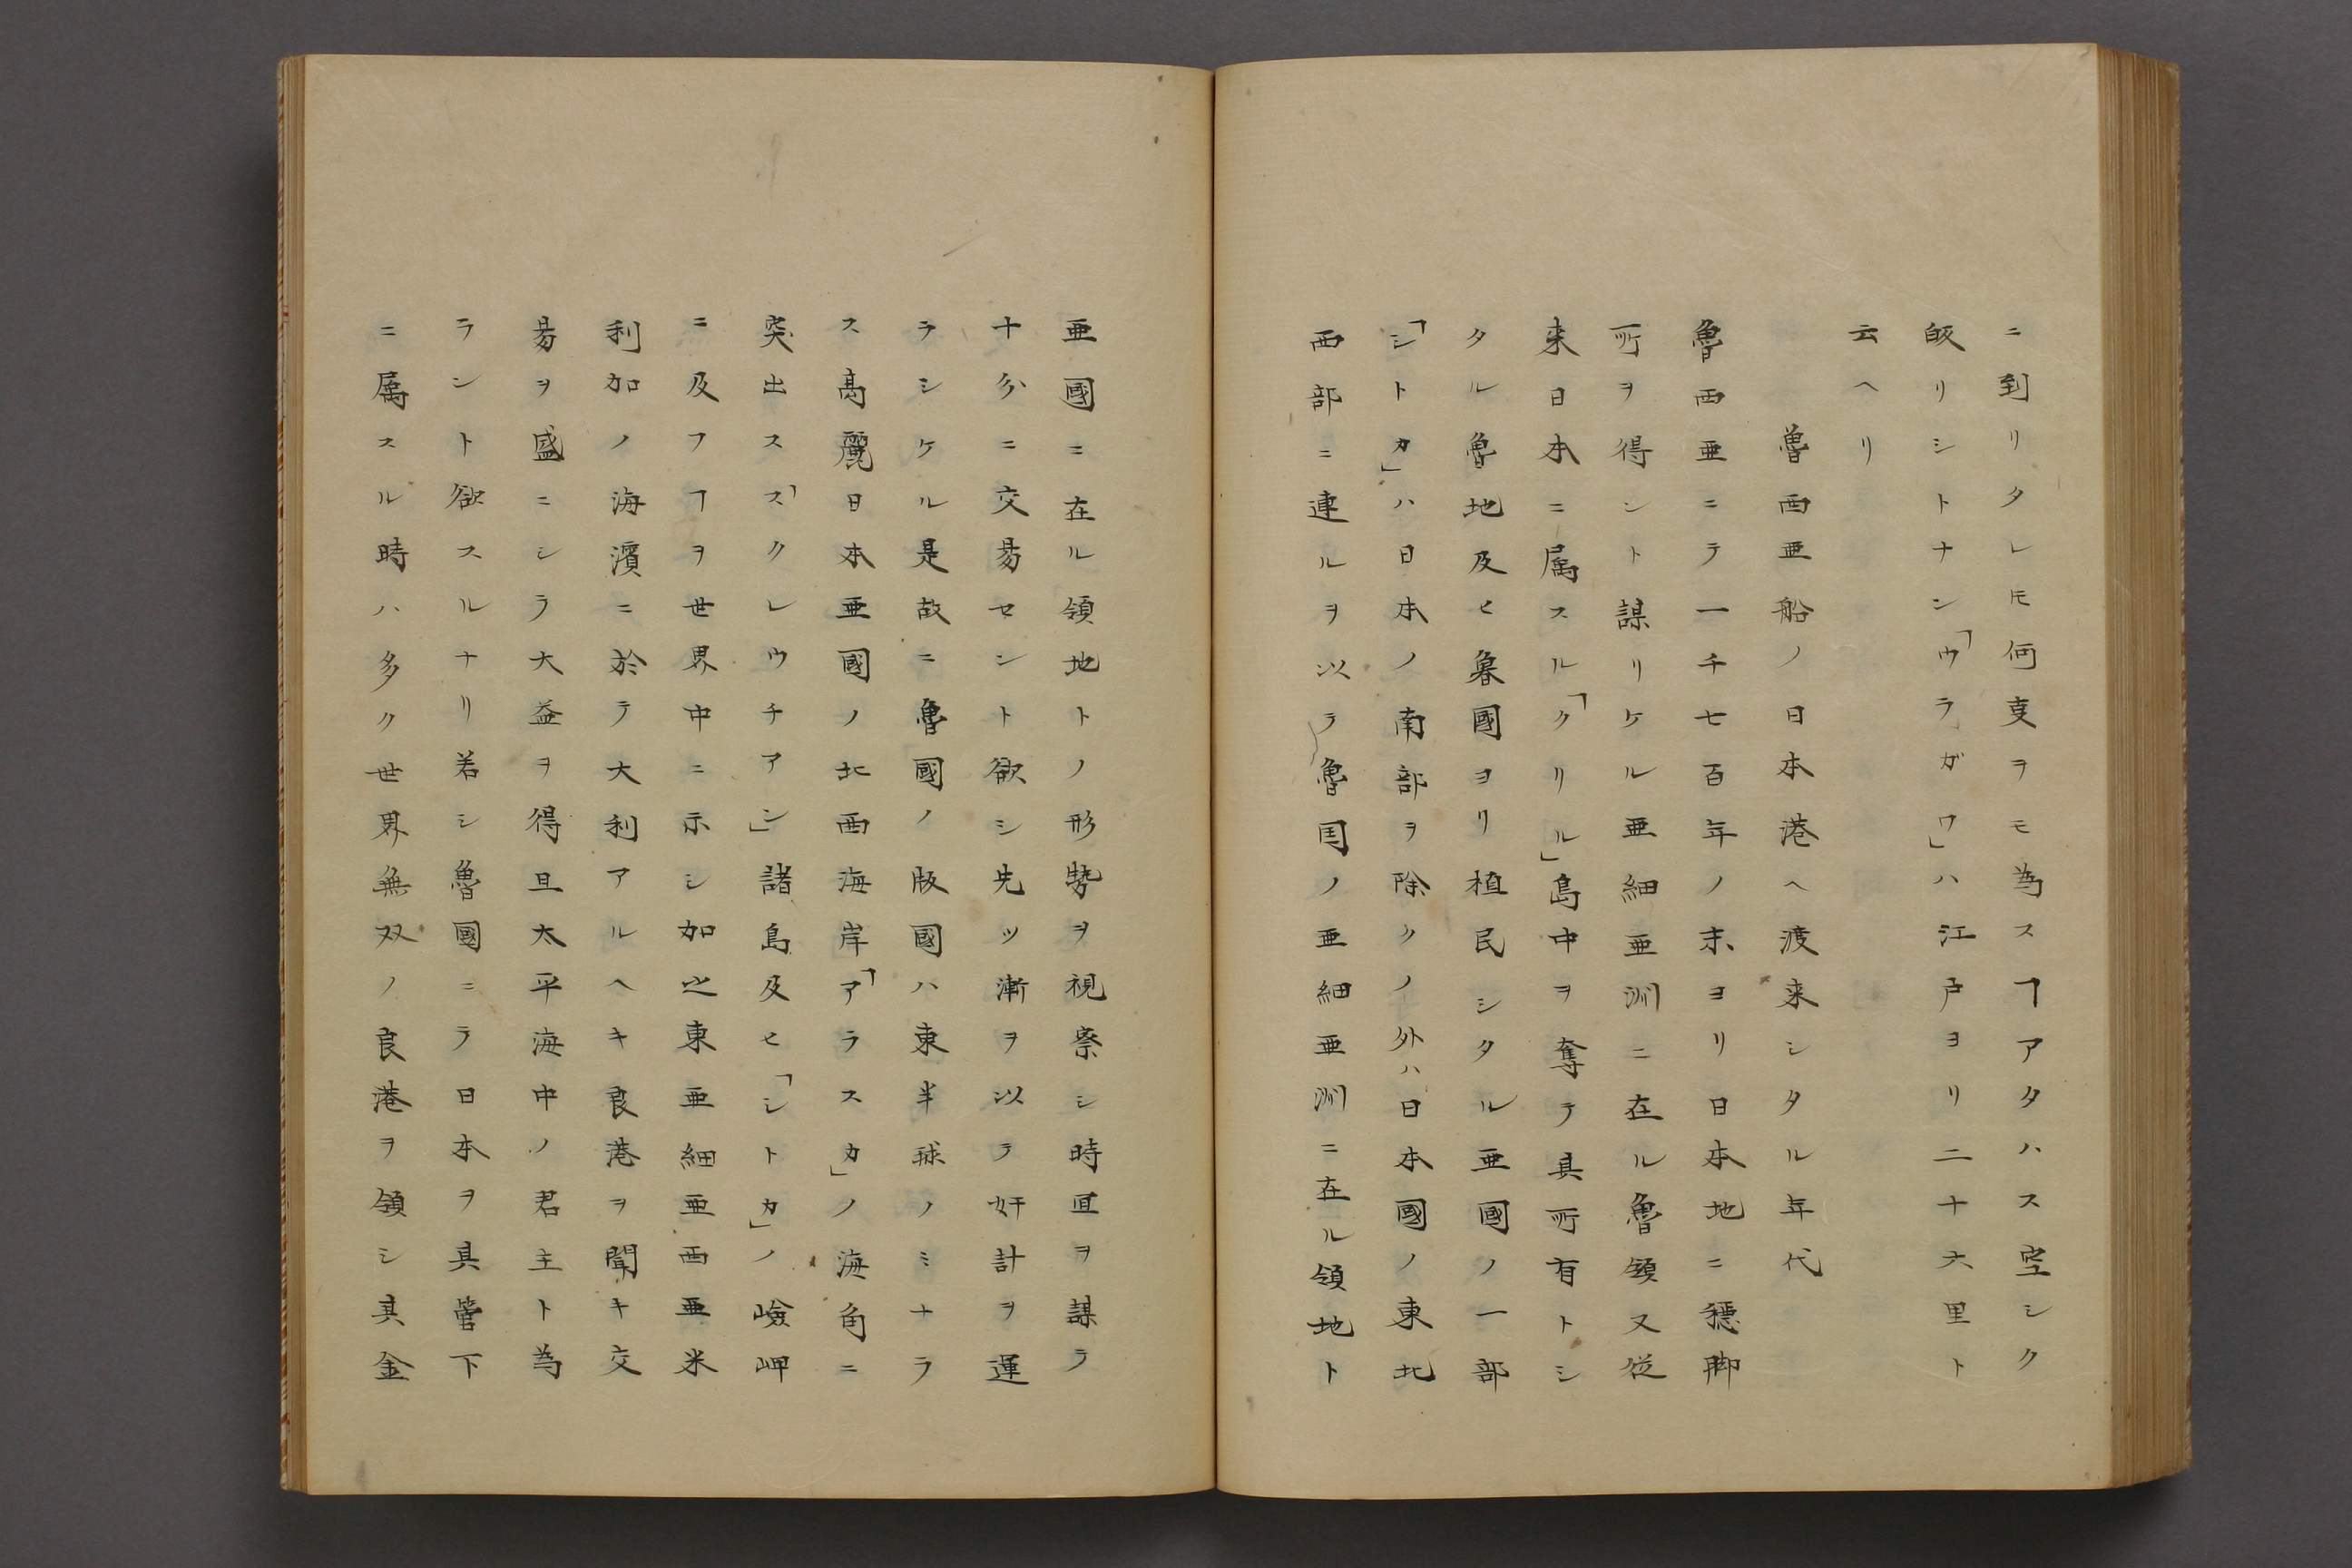 ニ到リタレ𪜈何㕝ヲモ為スヿアタハス空シク
皈リシトナン「ウラガワ」ハ江戸ヨリ二十六里ト
云ヘリ
魯西亜船ノ日本港ヘ渡来シタル年代
魯西亜ニテ一千七百年ノ末ヨリ日本地ニ穏脚
所ヲ得ント謀リケル亜細亜洲ニ在ル魯領又従
来日本ニ属スル「クリル」島中ヲ奪テ其所有トシ
タル魯地及ヒ魯國ヨリ植民シタル亜國ノ一部
「シトカ」ハ日本ノ南部ヲ除クノ外ハ日本國ノ東北
西部ニ連ルヲ以テ魯囯ノ亜細亜洲ニ在ル領地ト
亜國ニ在ル領地トノ形勢ヲ視察シ時宜ヲ謀テ
十分ニ交易セント欲シ先ツ漸ヲ以テ奸計ヲ運
ラシケル是故ニ魯國ノ版國ハ東半球ノミナラ
ス高麗日本亜國ノ北西海岸「アラスカ」ノ海角ニ
突出ス「スクレウチアン」諸島及ヒ「シトカ」ノ嶮岬
ニ及フヿヲ世界中ニ示シ加之東亜細亜西亜米
利加ノ海濱ニ於テ大利アルヘキ良港ヲ聞キ交
易ヲ盛ニシテ大益ヲ得旦太平海中ノ君主ト為
ラント欲スルナリ若シ魯國ニテ日本ヲ其管下
ニ属スル時ハ多ク世界無双ノ良港ヲ領シ其金